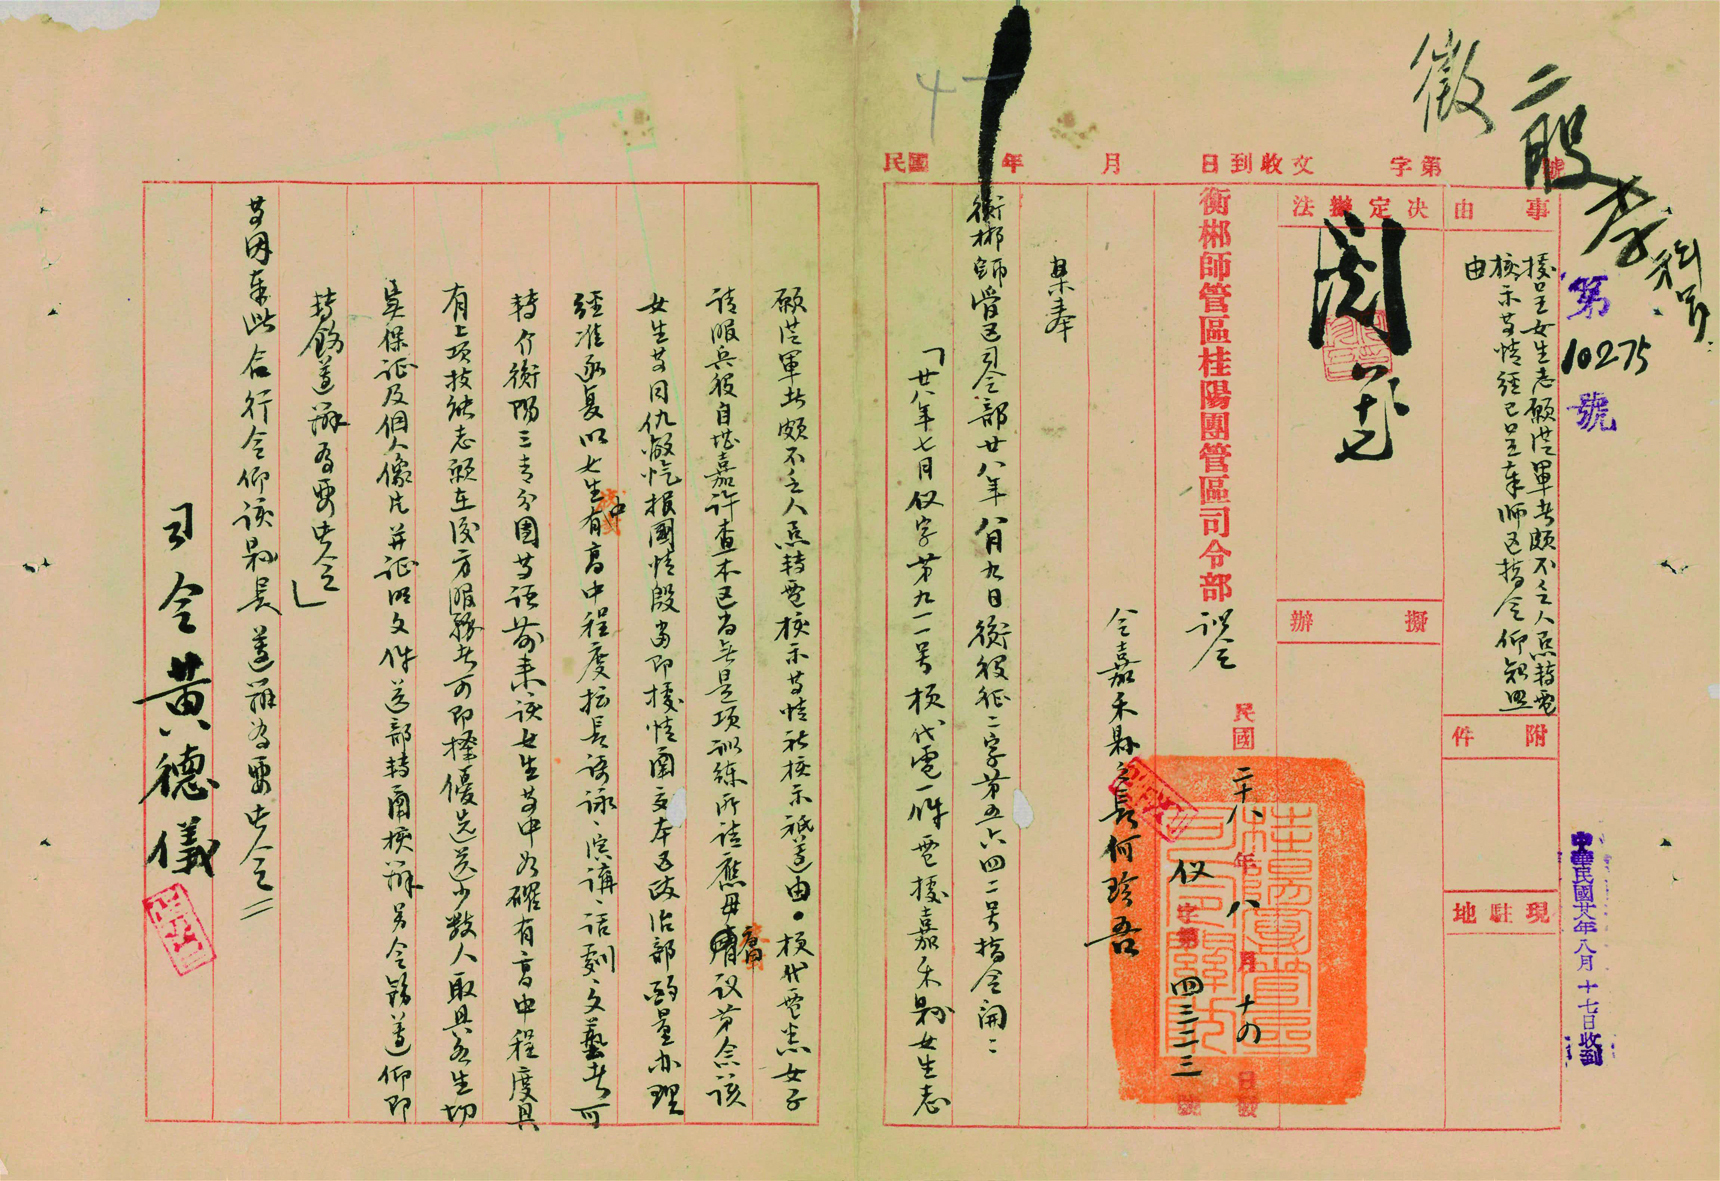 徵
二股
李科員
第10275號
中華民國廿八年八月十七日收到
民國 年 月 日到收文 字第 號
事由
據呈女生志願從軍者頗不乏人懇轉電
核示等情經已呈奉師區指令仰知照
由
附件
現駐地
決定辦法
閱
八十七
擬辦
衡郴師管區桂陽團管區司令部訓令
民國二十八年八月十四日發
役字第四三二三號
令嘉禾縣縣長何珍吾
案奉
衡郴師管區司令部廿八年八月九日衡役征二字第五六四二号指令開：
「廿八年七月役字第九一一号梗代電一件電據嘉禾縣女生志
願從軍者頗不乏人懇轉電核示等情祈核示祇遵由。梗代電悉女子
請服兵役自堪嘉許查本區尚無是項訓練所請應毋庸議第念該
女生等同仇敵愾報國情殷當即據情函立本區政治部酌量办理
經准函复以女生中有高中程度擅長歌詠、演講、話劇、文藝者可
轉介衡陽三青分團等語前來該女生等中如確有高中程度具
有上項技能志願在後方服務者可即擇優选送少數人取具各生切
實保証及個人像片并証明文件送部轉函核辦另令飭遵仰即
轉飭遵辦為要此令」
等因奉此合行令仰該縣長遵辦為要此令
司令黃德儀